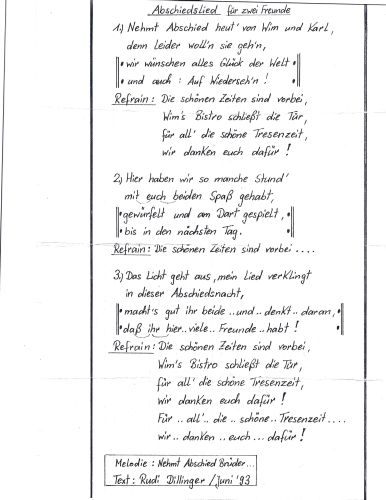 Abschiedslied für zwei Freunde
1.) Nehmt Abschied heut' von Wim und Karl,
denn leider woll'n sie geh'n,
wir wünschen alles Glück der Welt
und auch: Auf Wiederseh'n!
Refrain: Die schönen Zeiten sind vorbei,
Wim's Bistro schließt die Tür,
für all' die schöne Tresenzeit,
wir danken euch dafür!
2.) Hier haben wir so manche Stund'
mit euch beiden Spaß gehabt,
gewürfelt und am Dart gespielt,
bis in den nächsten Tag.
Refrain: Die schönen Zeiten sind vorbei ....
3.) Das Licht geht aus, mein Lied verklingt
in dieser Abschiedsnacht,
macht's gut ihr beide ..und ..denkt.. daran,
daß ihr hier..viele.. Freunde.. habt!
Refrain: Die schönen Zeiten sind vorbei,
Wim's Bistro schließt die Tür,
für all' die schöne Tresenzeit,
wir danken euch dafür!
Für .. all'.. die .. schöne.. Tresenzeit....
wir .. danken ..euch ... dafür!
Melodie: Nehmt Abschied Brüder...
Text: Rudi Dillinger / Juni '93